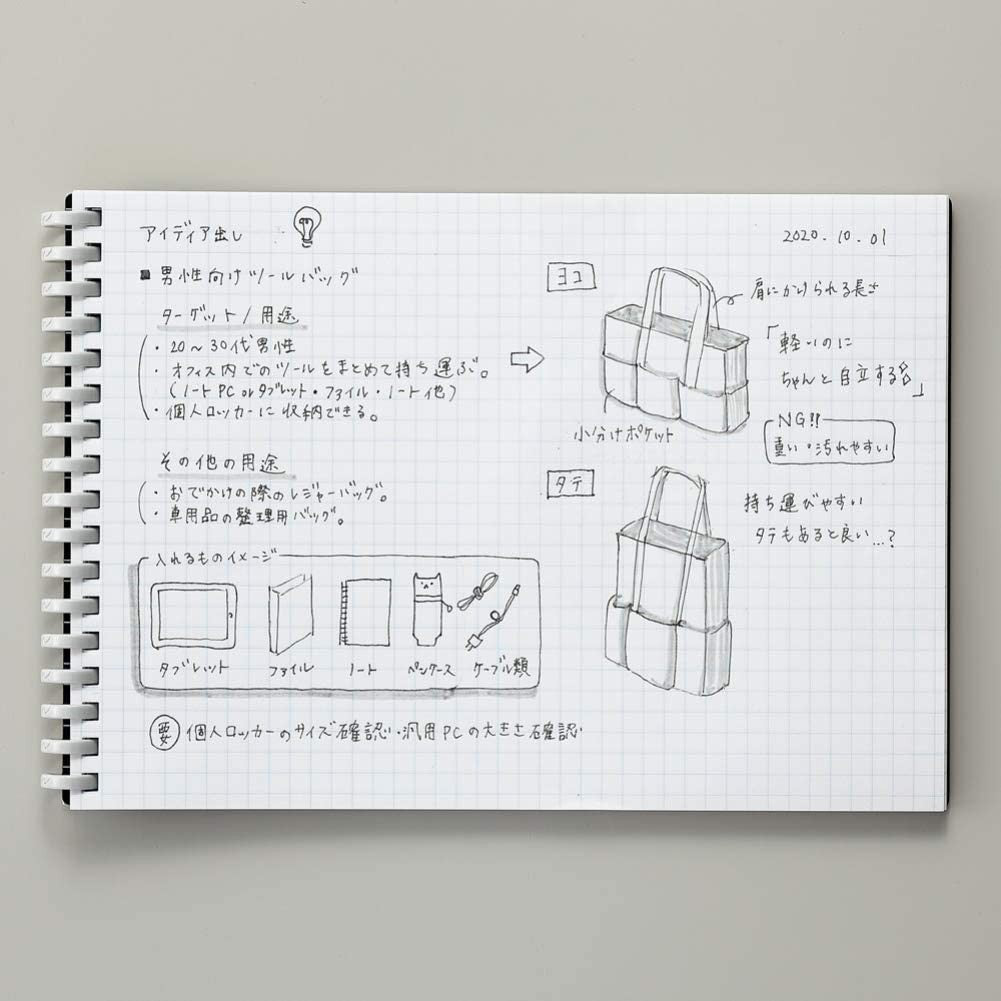 アイディア出し
2020.10.01
■男性向けツールバッグ
ターゲット/用途
・20～30代男性
・オフィス内でのツールをまとめて持ち運ぶ。
(ノートPC or タブレット・ファイル・ノート他)
・個人ロッカーに収納できる。
その他の用途
・おでかけの際のレジャーバッグ。
・車用品の整理用バッグ。
入れるものイメージ
タブレット
ファイル
ノート
ペンケース
ケーブル類
要 個人ロッカーのサイズ確認・汎用PCの大きさ確認
ヨコ
肩にかけられる長さ
「軽いのに
ちゃんと自立する」
小分けポケット
NG!!
重い・汚れやすい
タテ
持ち運びやすい
タテもあると良い…?